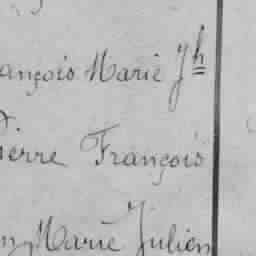 ançois Marie Jh
ierre François
Marie Julien